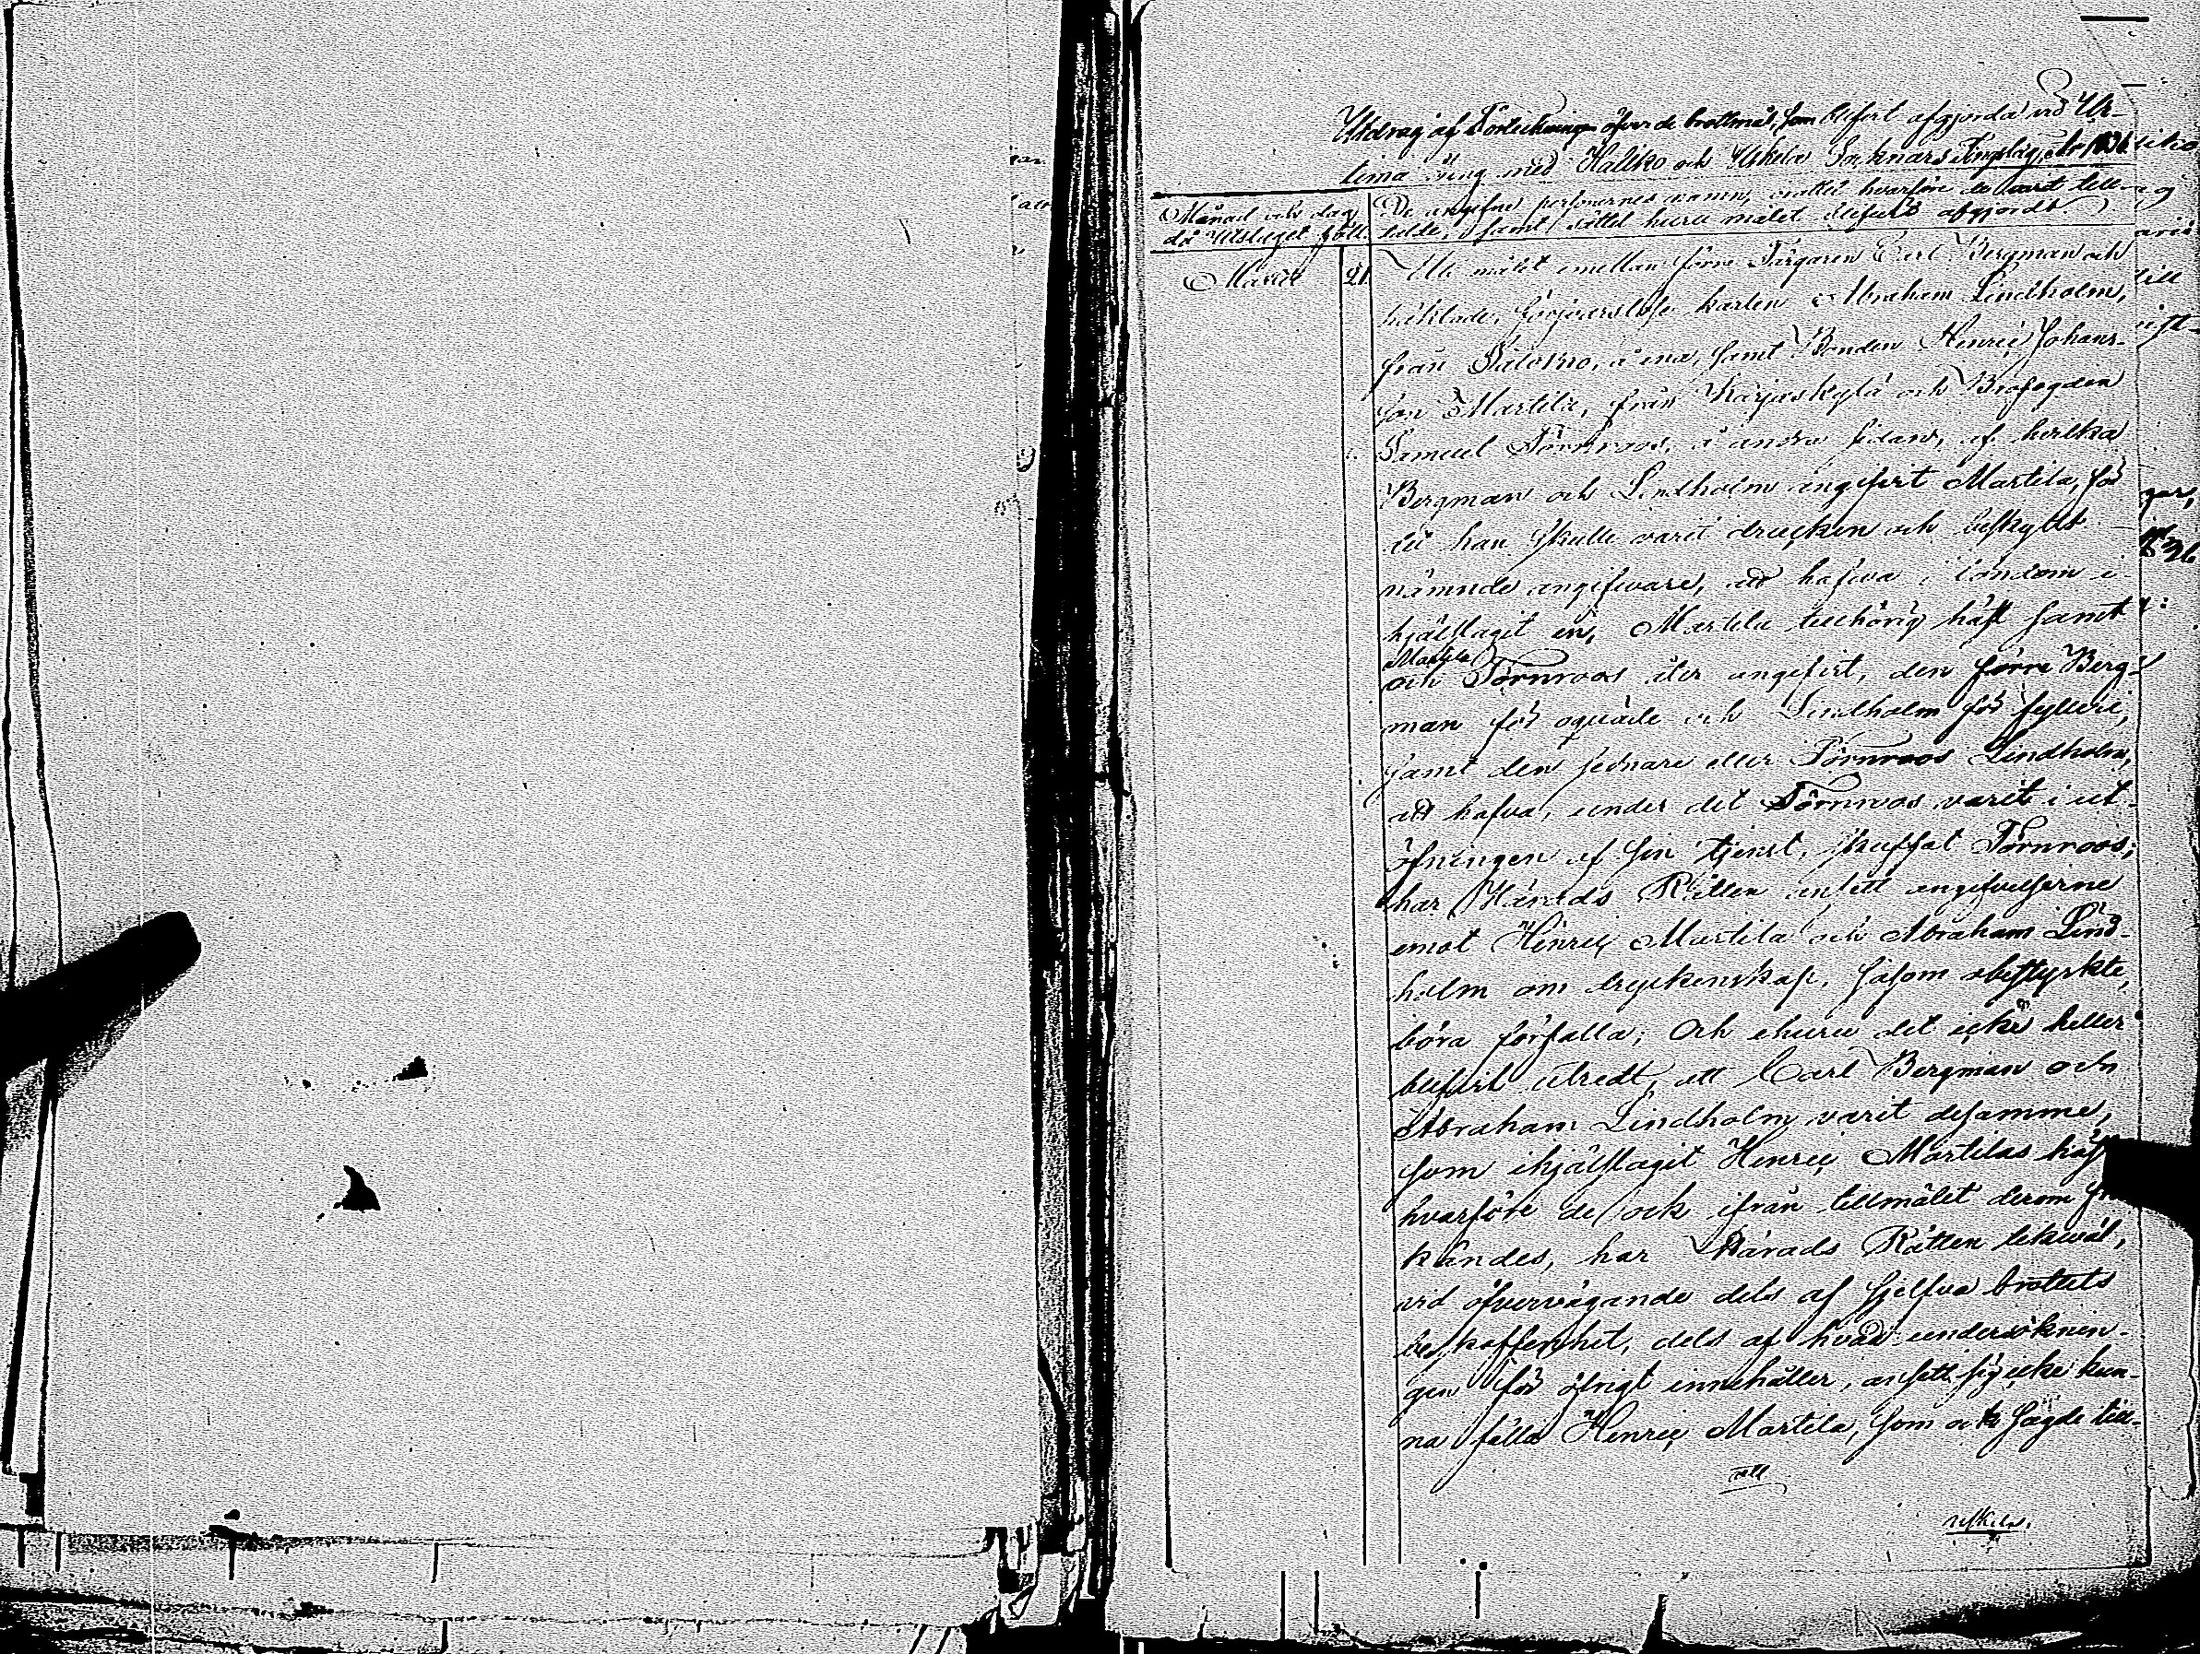 Utdrag af Förteckningen öfver de brottmål, som blifvit afgjorda vid Ur-
tima ting med Haliko och Uskela Socknars Tingslag, år 1836.
Månad och dag De angifne personernes namn, målet hvarföre de varit till-
då Utslaget föll. talte, samt sättet huru målet blifvit afgjordt.
Martii 21. Uti målet emellan förre Färgaren Carl Bergman och
häktade, försvarslöse karlen Abraham Lindholm,
från Salo å ena, samt Bonden Henric Johans-
son Martila, från Karjaskylä och Brofogden
Samuel Törnroos, å andra sidan, af hvilka
Bergman och Lindholm angifvit Martila, för
det han skulle varit drucken och beskyllt
nämnde angifware, att hafwa i löndom i-
hjälslagit en, Martila tillhörig häst samt
Martila
och Törnroos åter angifvit, den förre Berg-
man för oqväde och Lindholm för fylleri,
samt den sednare eller Törnroos Lindholm,
att hafva, under det Törnroos varit i ut-
öfningen af sin tjenst, skuffat Törnroos;
har Härads Rätten ansett angifvelserne
emot Henric Martila och Abraham Lind-
holm om dryckenskap, såsom obestyrkte,
böra förfalla; Och ehuru det icke heller
blifvit utredt, att Carl Bergman och
Abraham Lindholm varit desamme,
som ihjälslagit Henric Martilas häst
hvarföre de ock ifrån tillmålet derom
kändes, har Härads Rätten likwäl,
vid öfvervägande dels af sjelfva brottets
beskaffenhet, dels af hvad undersöknin-
gen för öfrigt innehåller, ansett sig icke kun-
na fälla Henric Martila, som ock sagde till-
Uskela.